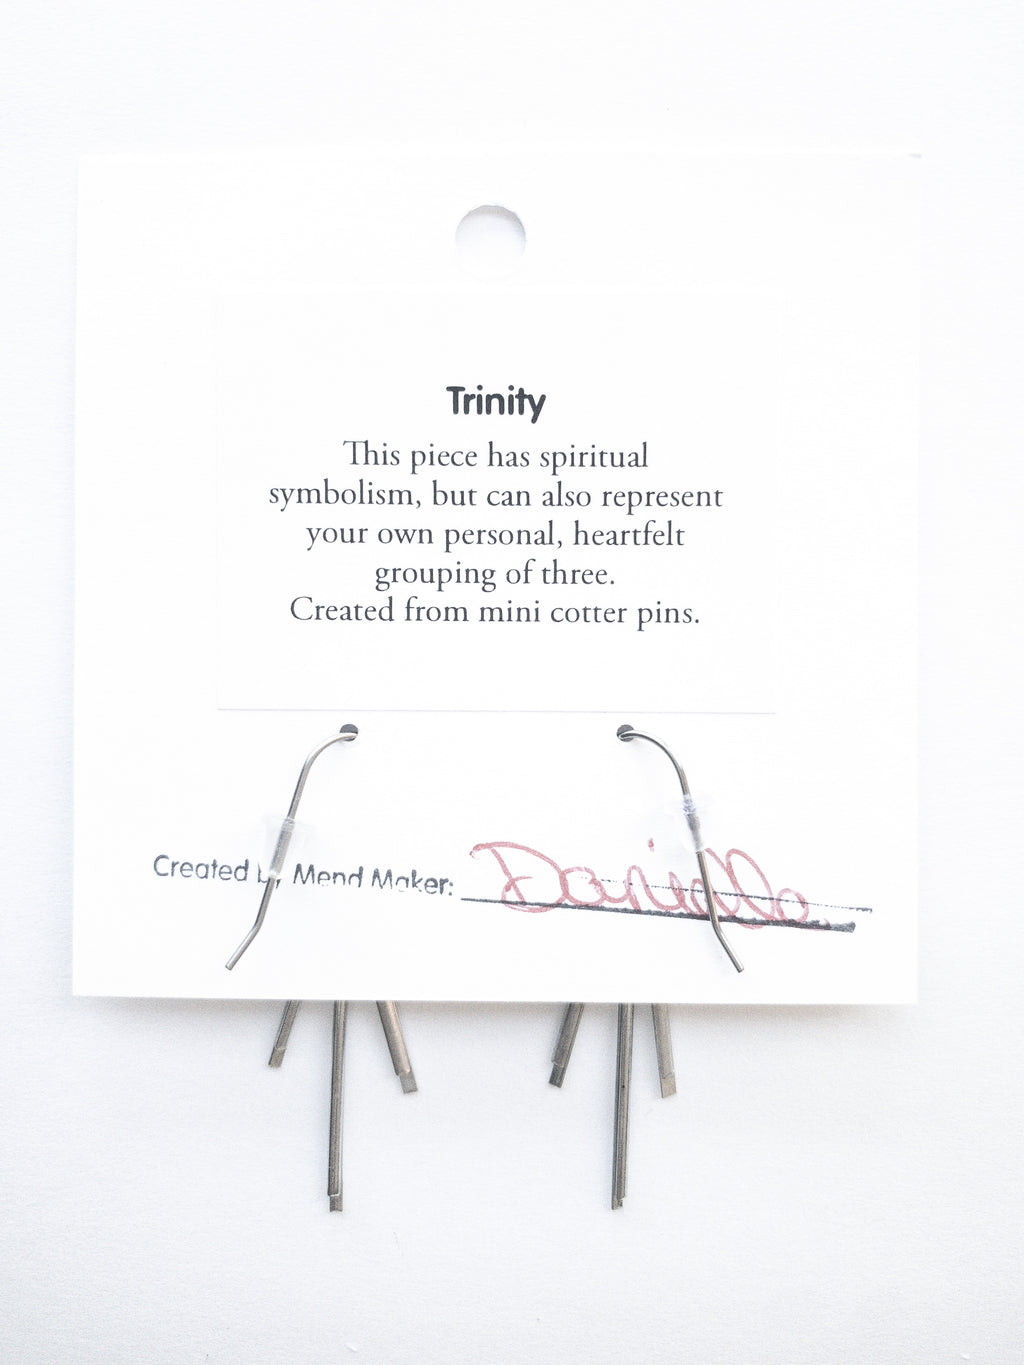 Trinity
This piece has spiritual
symbolism, but can also represent
your own personal, heartfelt
grouping of three.
Created from mini cotter pins.
Created by Mend Maker: Danielle